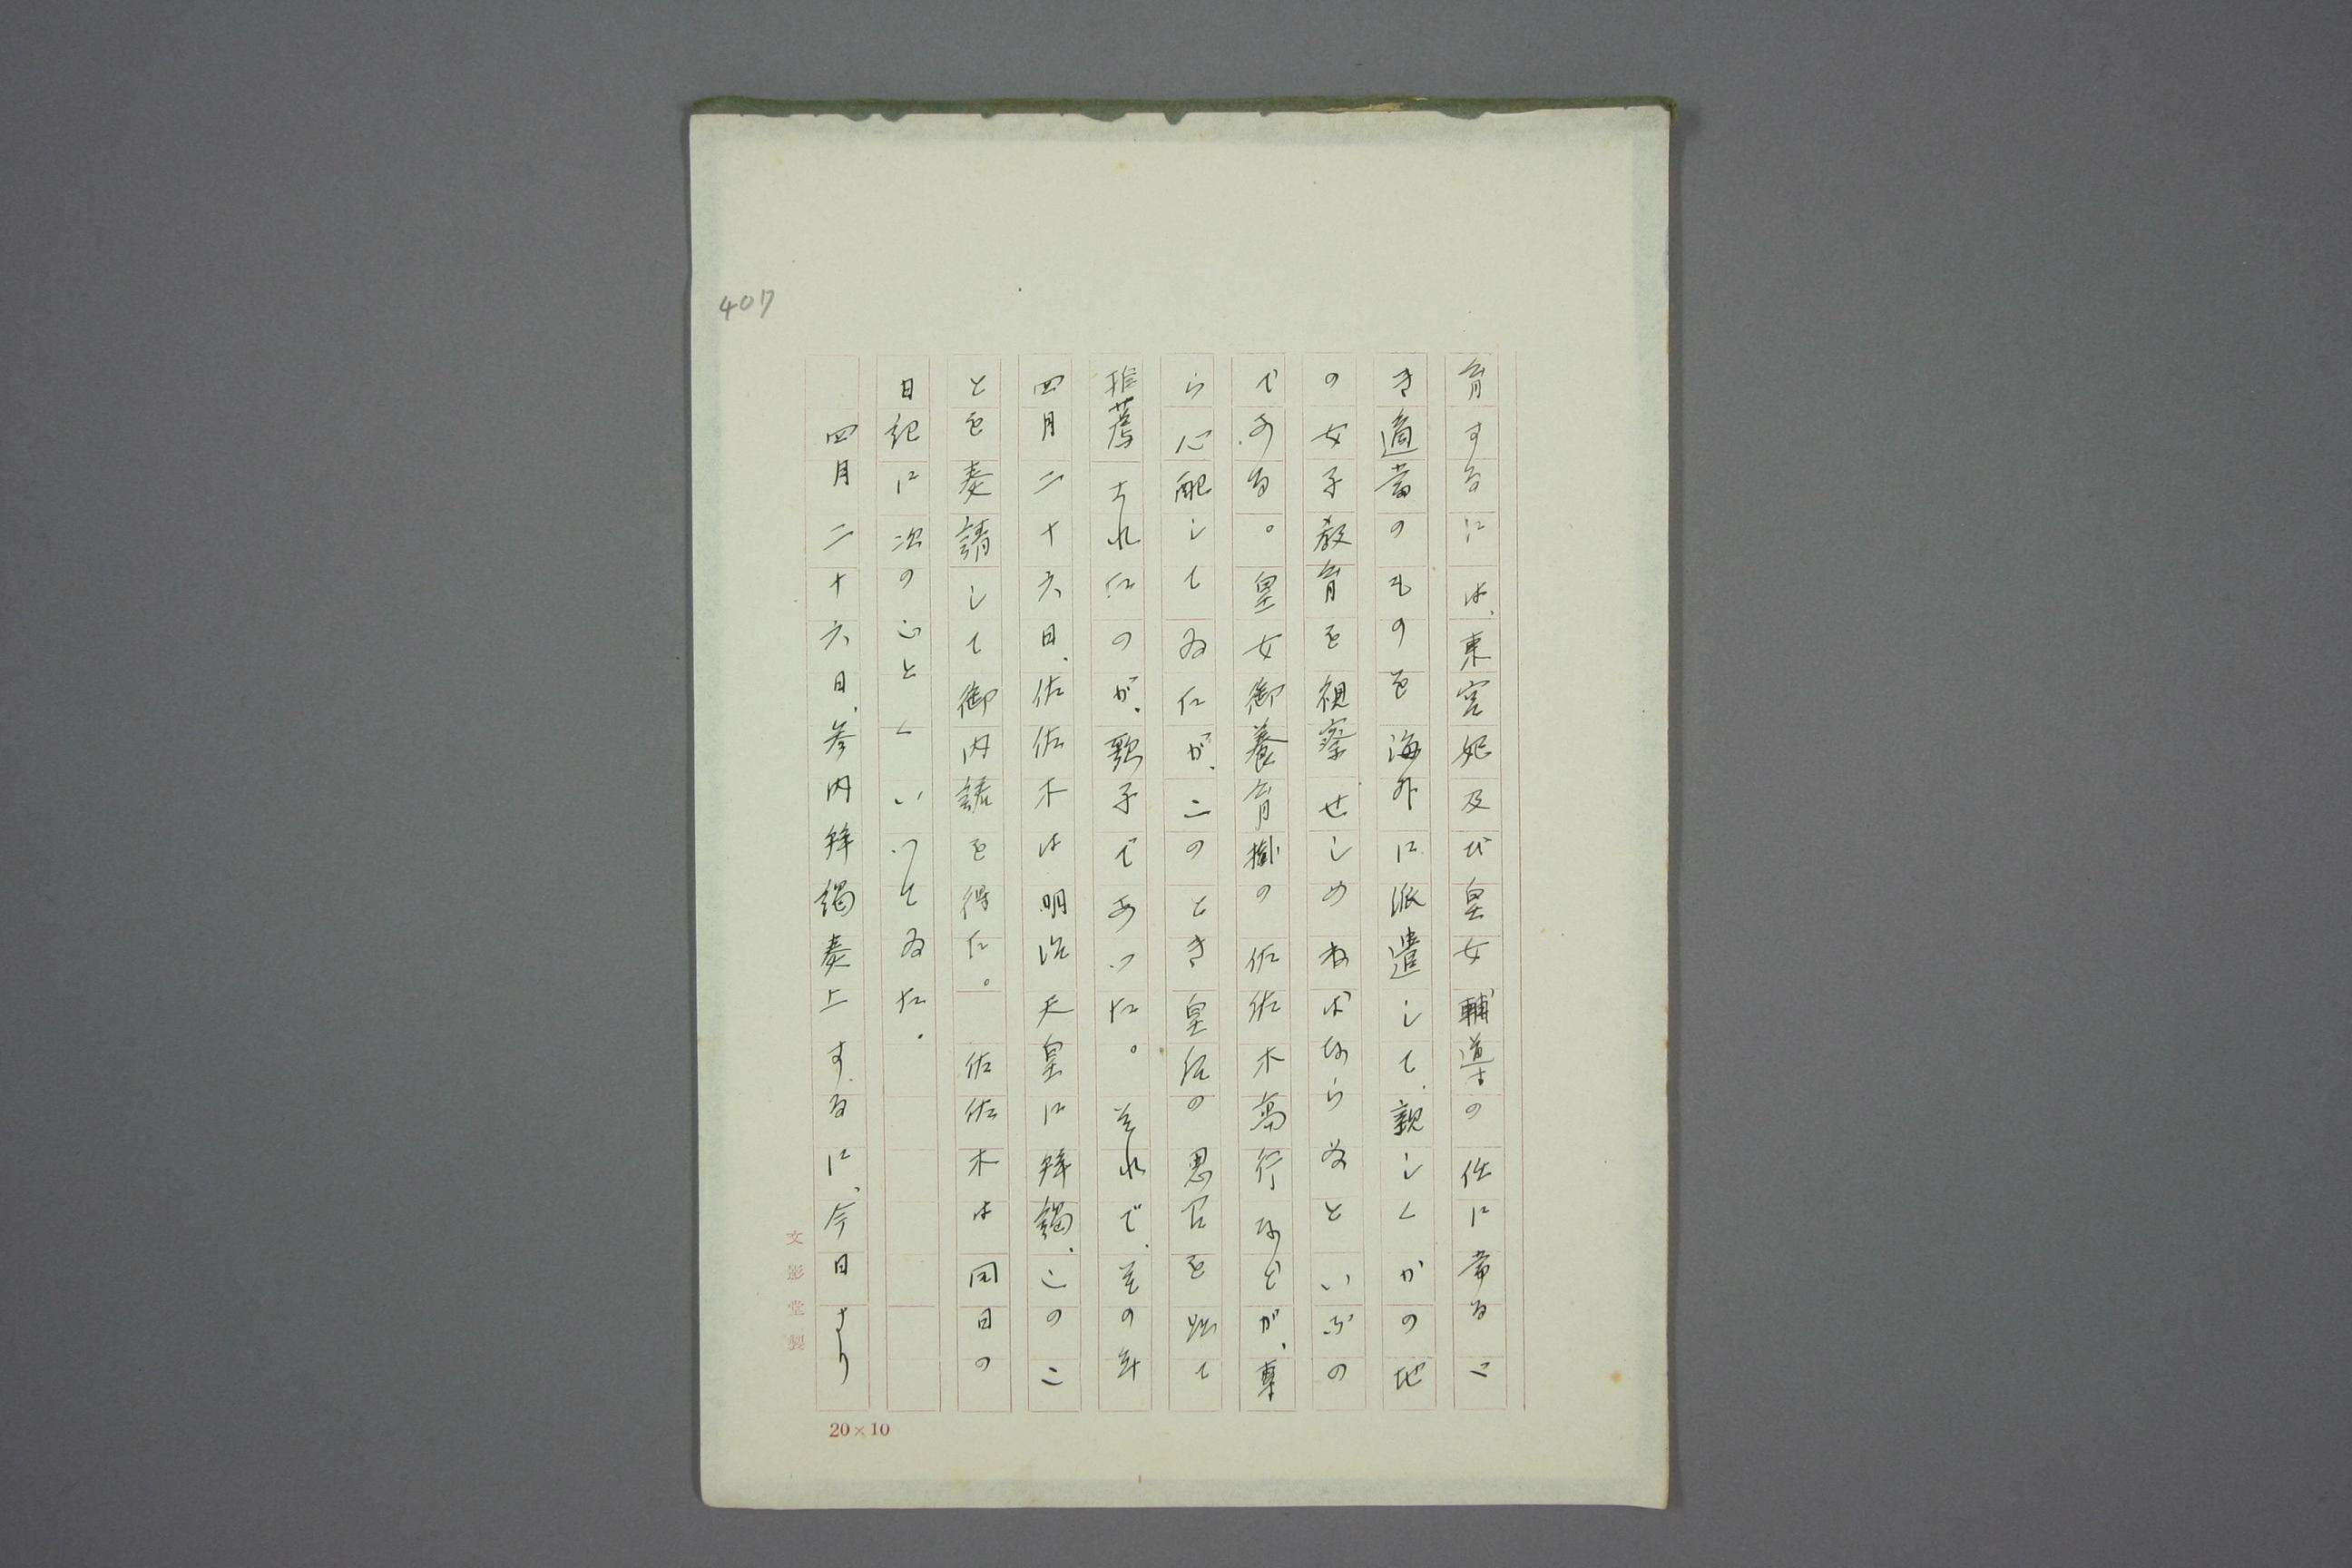 407
育するには、東宮妃及び皇女輔導の任に當るべ
き適當のものを海外に派遣して、親しくかの地
の女子教育を視察せしめねばならぬといふの
である。皇女御養育掛の佐佐木高行などが、專
ら心配してゐたが、このとき皇后の思召を て
推薦されたのが、歌子であつた。それで、その年
四月二十六日、佐佐木は明治天皇に拜謁、このこ
とを奏請して御内諾を得た。佐佐木は同日の
日記に次のごとくいつてゐた。
四月二十六日、参内拜謁奏上するに、今日より
文影堂製
20×10